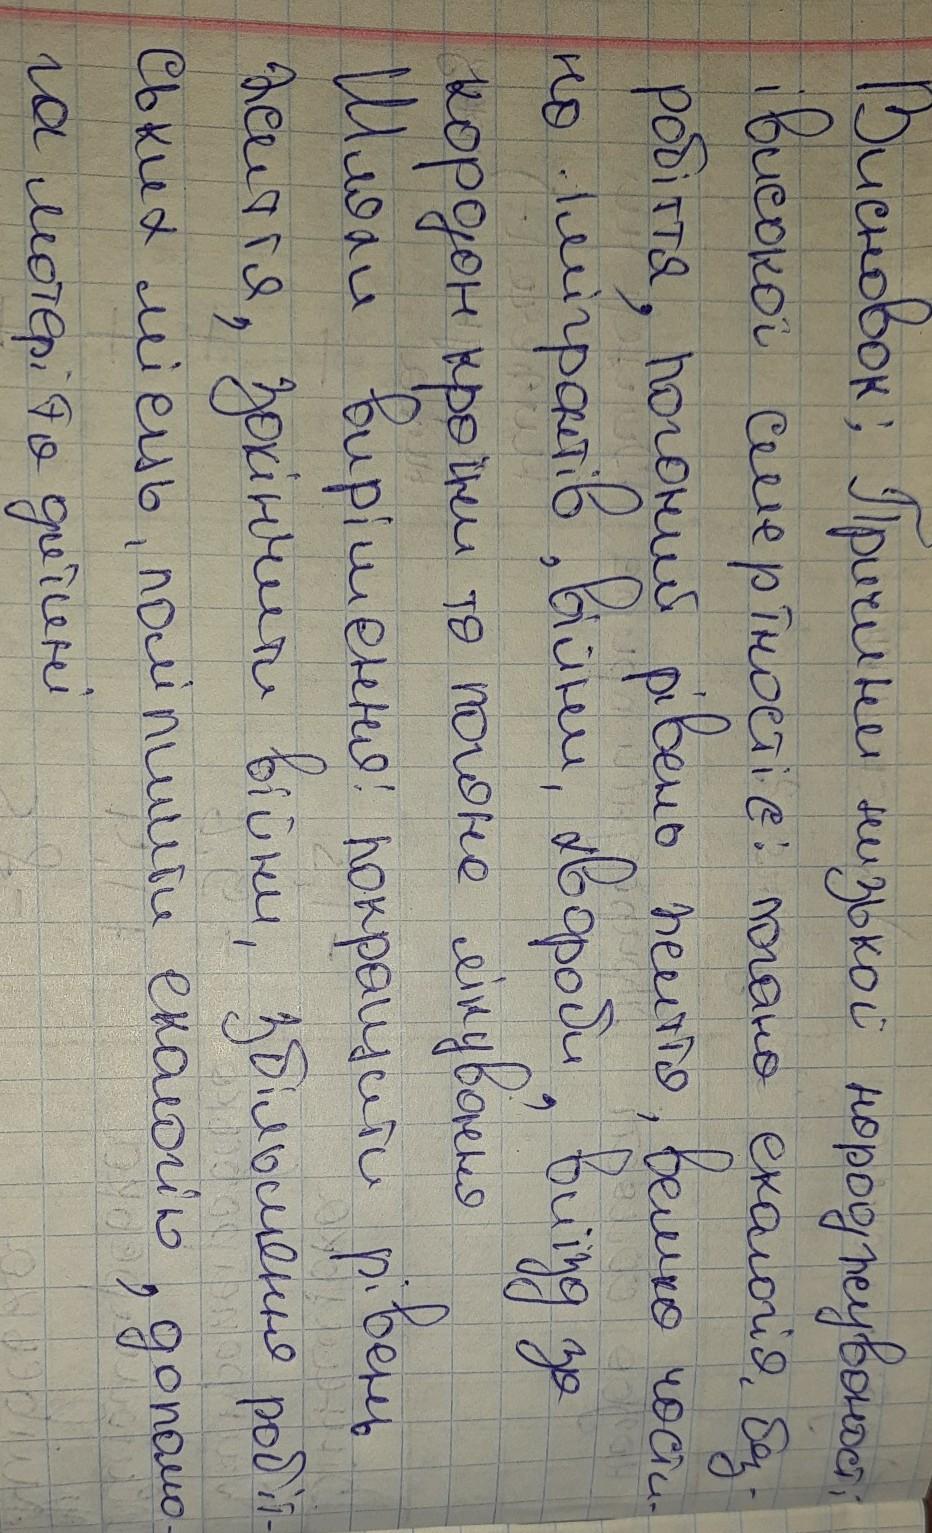 Висновок; Причини низької народжуваності
і високої смертності є: погано екалогія, без-
робіття, поганий рівень життя, велика части-
на імігрантів, війни, хвороби, виїзд за
кордон країни та погане лікування
Шляхи вирішення: покращити рівень
життя, закінчити війни, збільшення робіт-
ських місць, поліпшити екалогію, допомо-
га матері та дитині